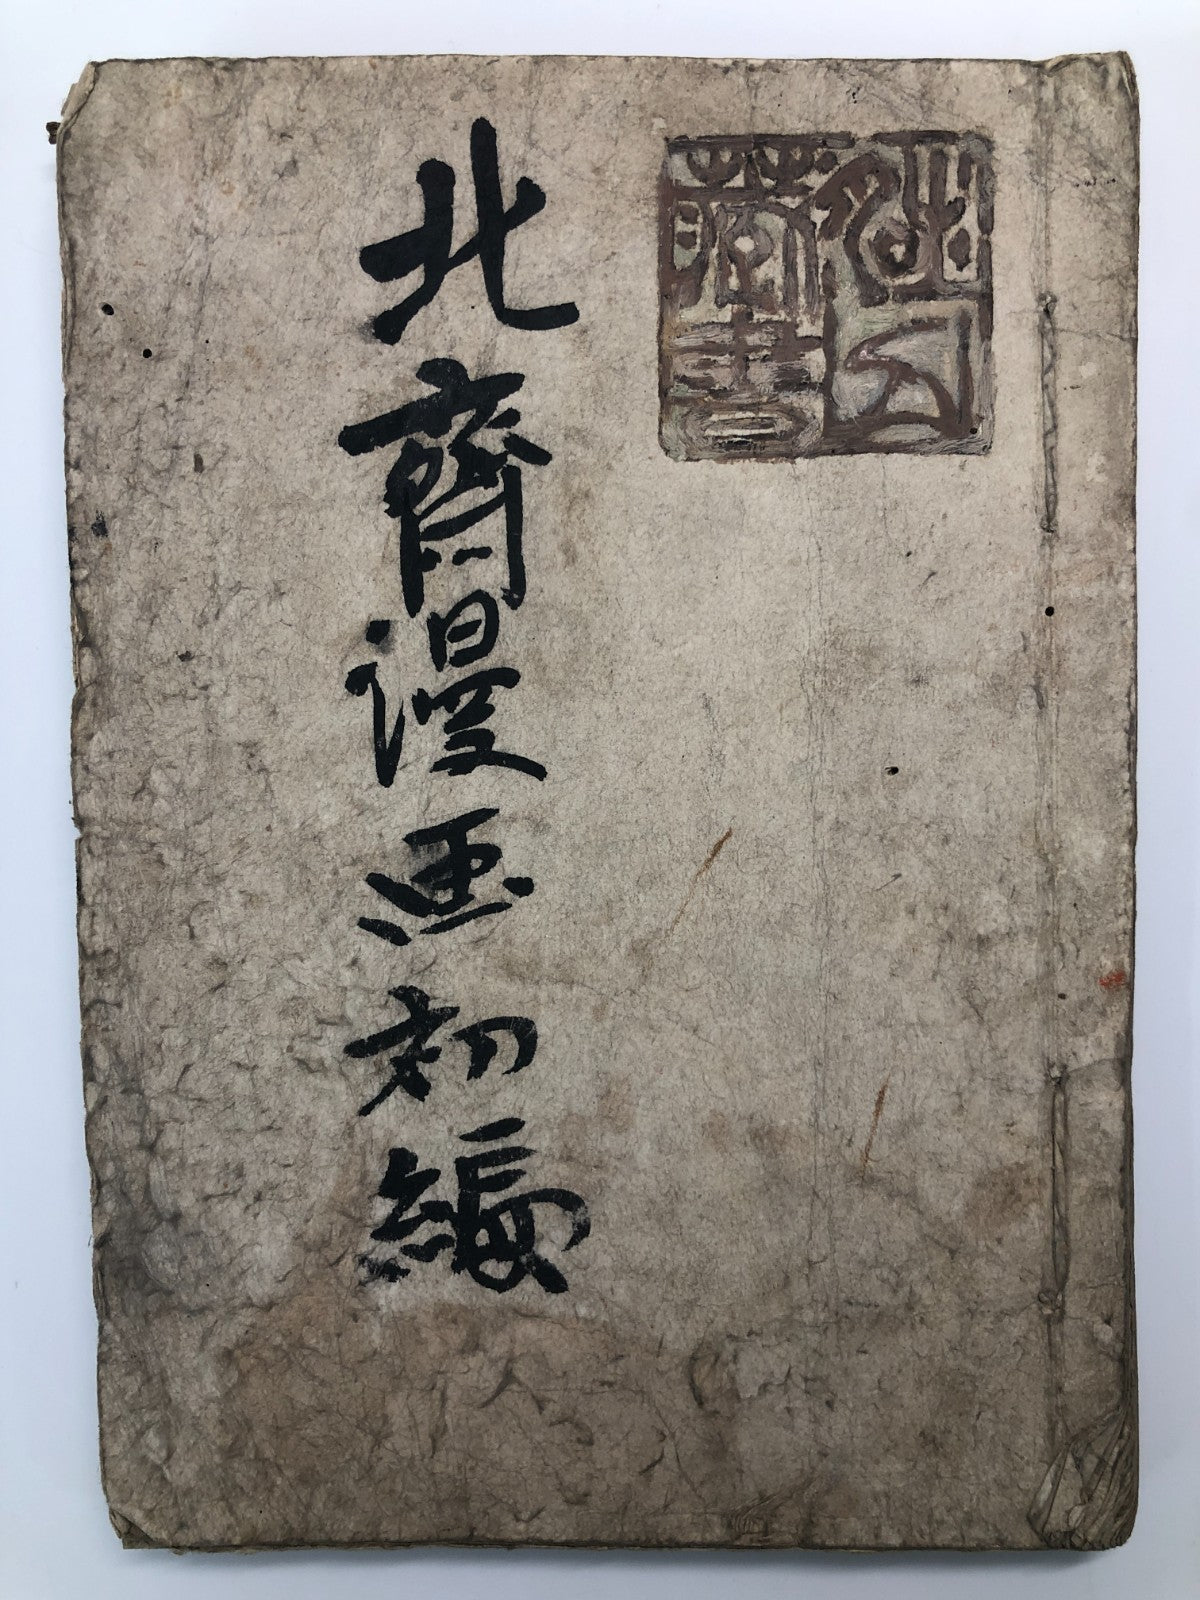 北齋漫画初編